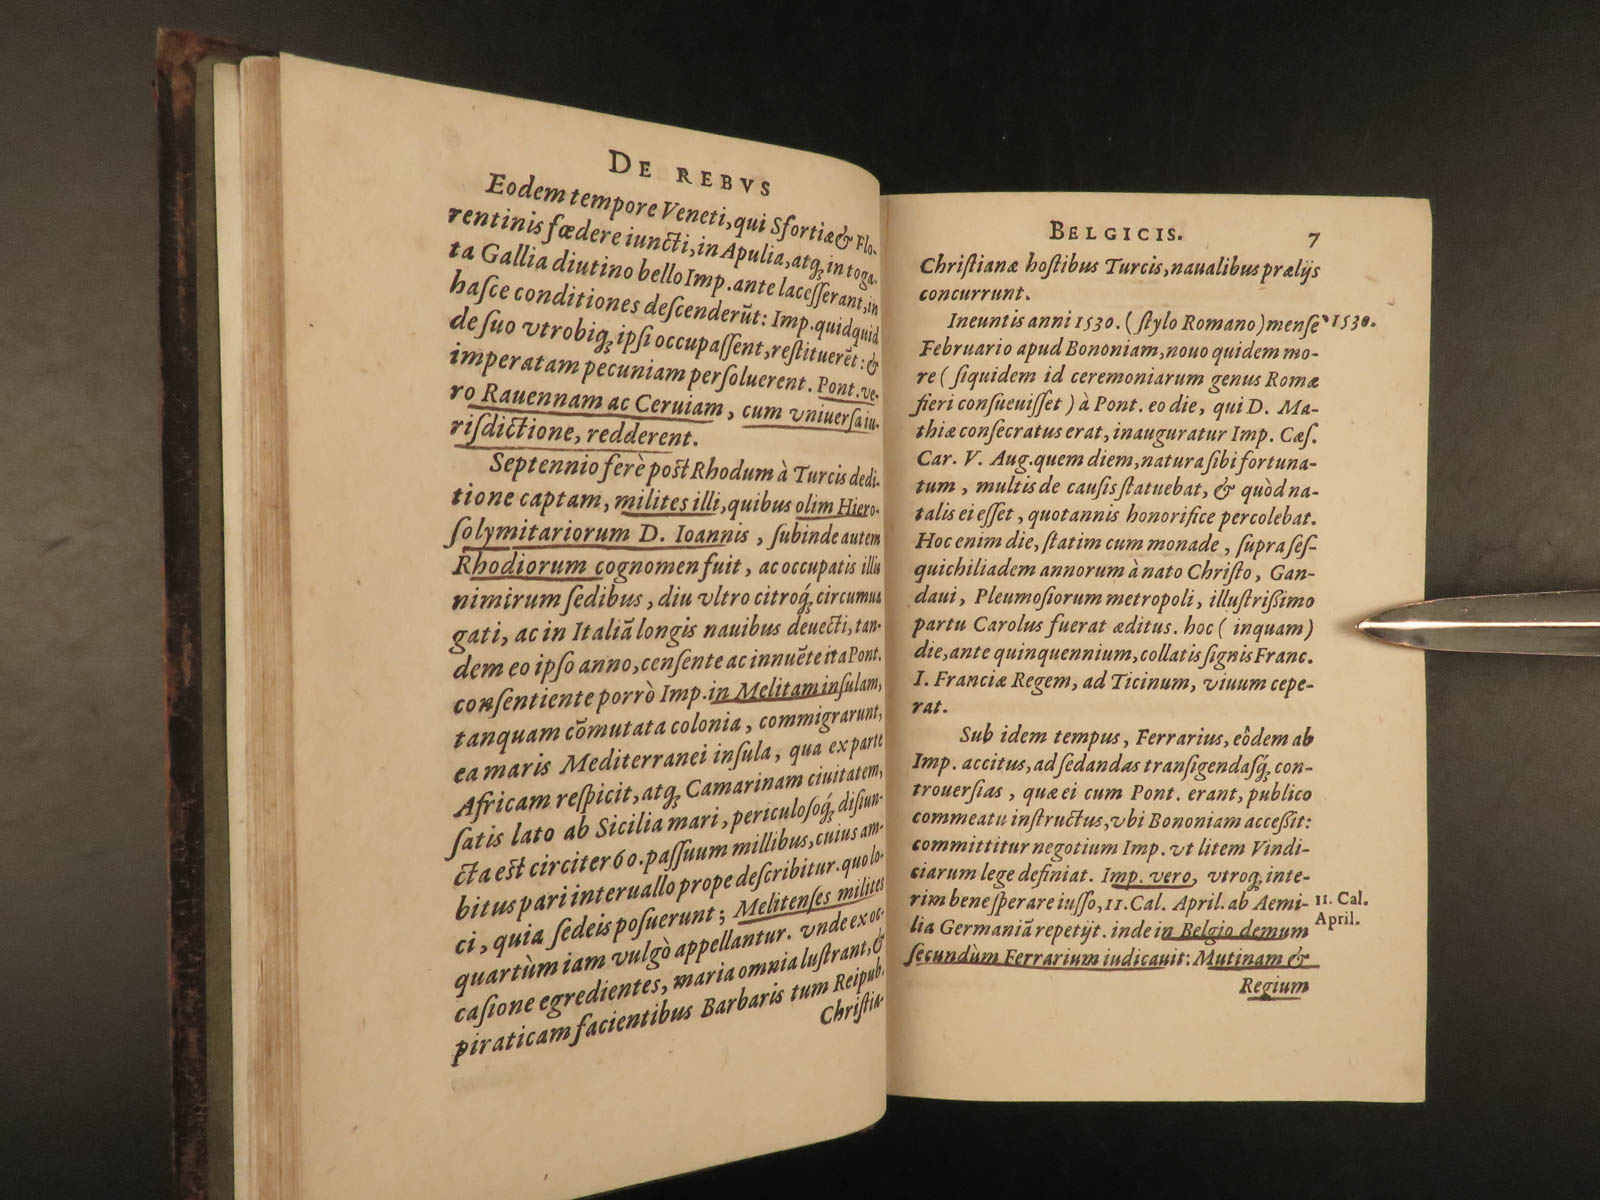 DE REBVS
Eodem tempore Veneti, qui Sfortiæ & Flo-
rentinis fœdere iuncti, in Apulia, atq; in toga-
ta Gallia diutino bello Imp. ante lacesserant, in
hasce conditiones descenderūt: Imp. quidquid
de suo vtrobiq; ipsi occupassent, restituerēt: &
imperatam pecuniam persoluerent. Pont. ve-
ro Rauennam ac Ceruiam, cum vniuersa iu-
risdictione, redderent.
Septennio ferè post Rhodum à Turcis dedi-
tione captam, milites illi, quibus olim Hiero-
solymitariorum D. Ioannis, subinde autem
Rhodiorum cognomen fuit, ac occupatis illis
nimirum sedibus, diu vltro citroq́; circumua
gati, ac in Italiā longis nauibus deuecti, tan-
dem eo ipso anno, censente ac innuēte ita Pont.
consentiente porrò Imp. in Melitam insulam,
tanquam cōmutata colonia, commigrarunt,
ea maris Mediterranei insula, qua ex parte
Africam respicit, atq; Camarinam ciuitatem,
satis lato ab Sicilia mari, periculosoq́; disiun-
cta est circiter 60. passuum millibus, cuius am-
bitus pari interuallo prope describitur. quo lo-
ci, quia sedeis posuerunt; Melitenses milites
quartùm iam vulgò appellantur. vnde ex oc-
casione egredientes, maria omnia lustrant, &
piraticam facientibus Barbaris tum Reipub.
Christia-
BELGICIS. 7
Christianæ hostibus Turcis, naualibus prælijs
concurrunt.
Ineuntis anni 1530. (stylo Romano) mense 1530.
Februario apud Bononiam, nouo quidem mo-
re (siquidem id ceremoniarum genus Romæ
fieri consueuisset) à Pont. eo die, qui D. Ma-
thiæ consecratus erat, inauguratur Imp. Cæs.
Car. V. Aug. quem diem, natura sibi fortuna-
tum, multis de causis statuebat, & quòd na-
talis ei esset, quotannis honorifice percolebat.
Hoc enim die, statim cum monade, supra ses-
quichiliadem annorum à nato Christo, Gan-
daui, Pleumosiorum metropoli, illustrißimo
partu Carolus fuerat æditus. hoc (inquam)
die, ante quinquennium, collatis signis Franc.
I. Franciæ Regem, ad Ticinum, viuum cepe-
rat.
Sub idem tempus, Ferrarius, eôdem ab
Imp. accitus, ad sedandas transigendasq́; con-
trouersias, quæ ei cum Pont. erant, publico
commeatu instructus, vbi Bononiam acceßit:
committitur negotium Imp. vt litem Vindi-
ciarum lege definiat. Imp. vero, vtroq; inte-
rim bene sperare iusso, 11. Cal. April. ab Aemi-
11. Cal.
April.
lia Germaniā repetijt. inde in Belgio demum
secundùm Ferrarium iudicauit: Mutinam &
Regium